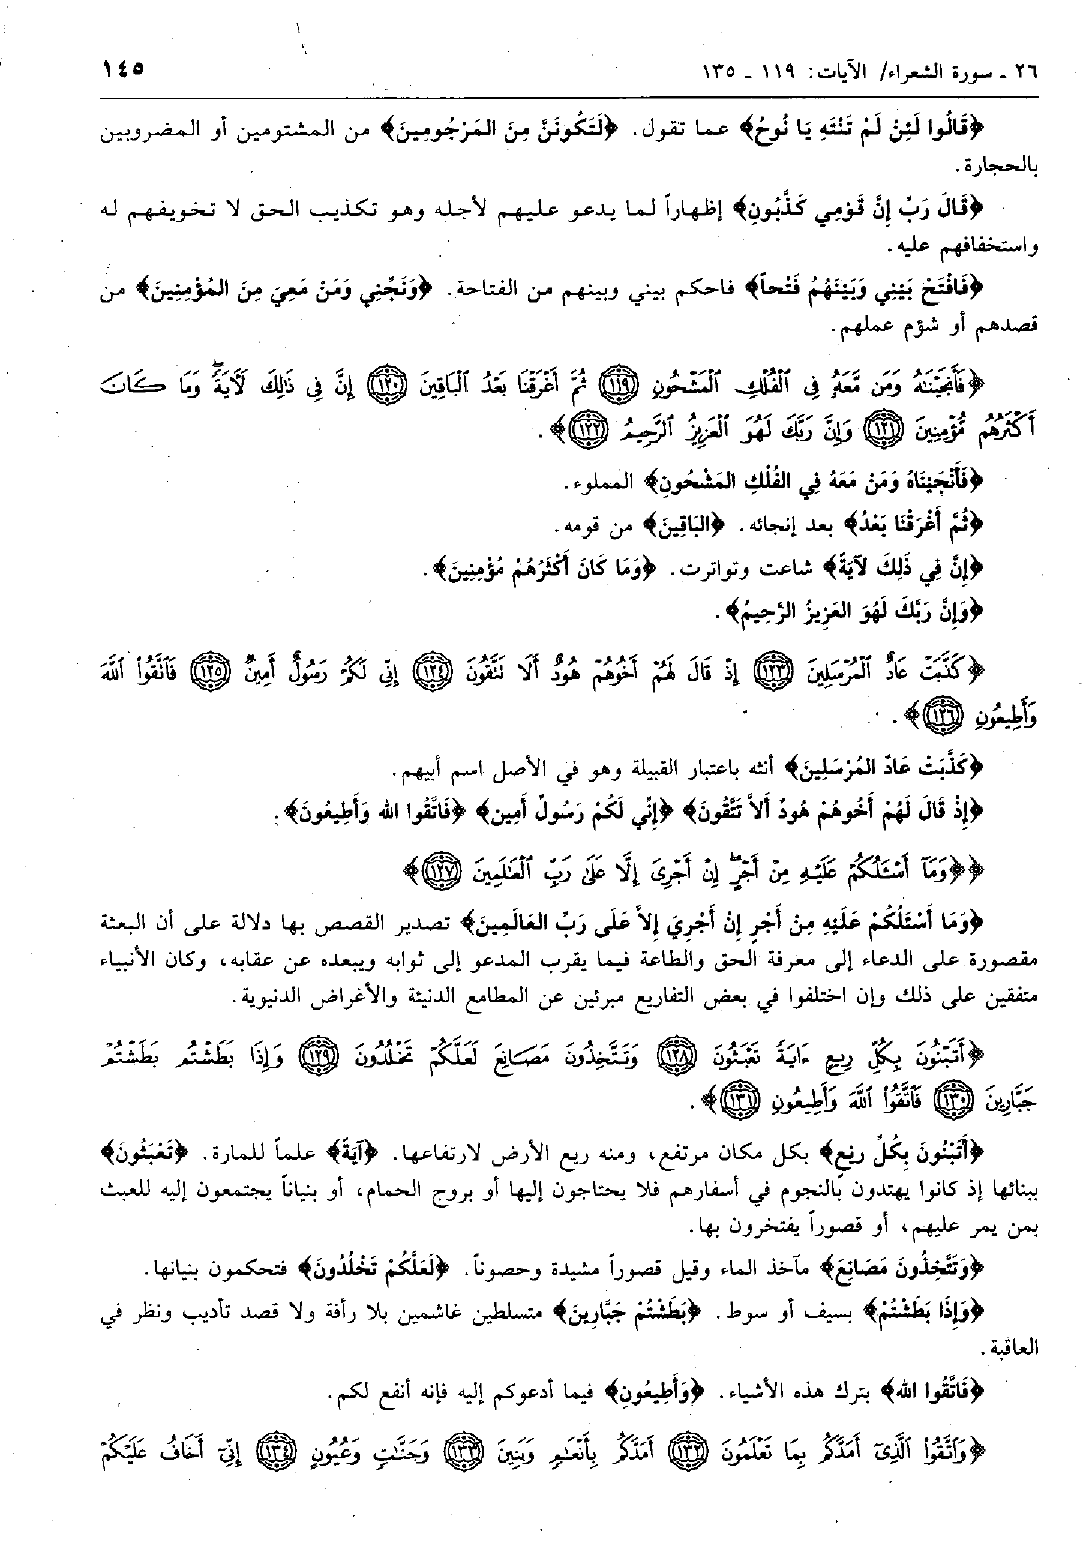 ٢٦ ـ سورة الشعراء/ الآيات: ١١٩ ـ ١٣٥ ١٤٥
﴿قَالُوا لَئِنْ لَمْ تَنْتَهِ يَا نُوحُ﴾ عما تقول. ﴿لَتَكُونَنَّ مِنَ المَرْجُومِينَ﴾ من المشتومين أو المضروبين
بالحجارة.
﴿قَالَ رَبِّ إِنَّ قَوْمِي كَذَّبُونِ﴾ إظهاراً لما يدعو عليهم لأجله وهو تكذيب الحق لا تخويفهم له
واستخفافهم عليه.
﴿فَافْتَحْ بَيْنِي وَبَيْنَهُمْ فَتْحاً﴾ فاحكم بيني وبينهم من الفتاحة. ﴿وَنَجِّنِي وَمَنْ مَعِيَ مِنَ المُؤْمِنِينَ﴾ من
قصدهم أو شؤم عملهم.
﴿فَأَنجَيْنَـٰهُ وَمَن مَّعَهُ فِى ٱلْفُلْكِ ٱلْمَشْحُونِ ١١٩ ثُمَّ أَغْرَقْنَا بَعْدُ ٱلْبَاقِينَ ١٢٠ إِنَّ فِى ذَٰلِكَ لَآيَةً وَمَا كَانَ
أَكْثَرُهُم مُّؤْمِنِينَ ١٢١ وَإِنَّ رَبَّكَ لَهُوَ ٱلْعَزِيزُ ٱلرَّحِيمُ ١٢٢﴾.
﴿فَأَنْجَيْنَاهُ وَمَنْ مَعَهُ فِي الفُلْكِ المَشْحُونِ﴾ المملوء.
﴿ثُمَّ أَغْرَقْنَا بَعْدُ﴾ بعد إنجائه. ﴿البَاقِينَ﴾ من قومه.
﴿إِنَّ فِي ذَلِكَ لآيَةً﴾ شاعت وتواترت. ﴿وَمَا كَانَ أَكْثَرُهُمْ مُؤْمِنِينَ﴾.
﴿وَإِنَّ رَبَّكَ لَهُوَ العَزِيزُ الرَّحِيمُ﴾.
﴿كَذَّبَتْ عَادٌ ٱلْمُرْسَلِينَ ١٢٣ إِذْ قَالَ لَهُمْ أَخُوهُمْ هُودٌ أَلَا نَتَّقُونَ ١٢٤ إِنِّى لَكُمْ رَسُولٌ أَمِينٌ ١٢٥ فَٱتَّقُوا۟ ٱللَّهَ
وَأَطِيعُونِ ١٢٦﴾.
﴿كَذَّبَتْ عَادٌ المُرْسَلِينَ﴾ أنثه باعتبار القبيلة وهو في الأصل اسم أبيهم.
﴿إِذْ قَالَ لَهُمْ أَخُوهُمْ هُودٌ أَلاَ تَتَّقُونَ﴾ ﴿إِنِّي لَكُمْ رَسُولٌ أَمِين﴾ ﴿فَاتَّقُوا الله وَأَطِيعُونِ﴾.
﴿﴿وَمَآ أَسْـَٔلُكُمْ عَلَيْهِ مِنْ أَجْرٍ إِنْ أَجْرِىَ إِلَّا عَلَىٰ رَبِّ ٱلْعَـٰلَمِينَ ١٢٧﴾
﴿وَمَا أَسْئَلُكُمْ عَلَيْهِ مِنْ أَجْرٍ إِنْ أَجْرِيَ إِلاَّ عَلَى رَبِّ العَالَمِينَ﴾ تصدير القصص بها دلالة على أن البعثة
مقصورة على الدعاء إلى معرفة الحق والطاعة فيما يقرب المدعو إلى ثوابه ويبعده عن عقابه، وكان الأنبياء
متفقين على ذلك وإن اختلفوا في بعض التفاريع مبرئين عن المطامع الدنيئة والأغراض الدنيوية.
﴿أَتَبْنُونَ بِكُلِّ رِيعٍ ءَايَةً تَعْبَثُونَ ١٢٨ وَتَتَّخِذُونَ مَصَانِعَ لَعَلَّكُمْ تَخْلُدُونَ ١٢٩ وَإِذَا بَطَشْتُم بَطَشْتُمْ
جَبَّارِينَ ١٣٠ فَٱتَّقُوا۟ ٱللَّهَ وَأَطِيعُونِ ١٣١﴾.
﴿أَتَبْنُونَ بِكُلِّ رِيْعٍ﴾ بكل مكان مرتفع، ومنه ريع الأرض لارتفاعها. ﴿آيَةً﴾ علماً للمارة. ﴿تَعْبَثُونَ﴾
ببنائها إذ كانوا يهتدون بالنجوم في أسفارهم فلا يحتاجون إليها أو بروج الحمام، أو بنياناً يجتمعون إليه للعبث
بمن يمر عليهم، أو قصوراً يفتخرون بها.
﴿وَتَتَّخِذُونَ مَصَانِعَ﴾ مآخذ الماء وقيل قصوراً مشيدة وحصوناً. ﴿لَعَلَّكُمْ تَخْلُدُونَ﴾ فتحكمون بنيانها.
﴿وَإِذَا بَطَشْتُمْ﴾ بسيف أو سوط. ﴿بَطَشْتُمْ جَبَّارِينَ﴾ متسلطين غاشمين بلا رأفة ولا قصد تأديب ونظر في
العاقبة.
﴿فَاتَّقُوا الله﴾ بترك هذه الأشياء. ﴿وَأَطِيعُونِ﴾ فيما أدعوكم إليه فإنه أنفع لكم.
﴿وَٱتَّقُوا۟ ٱلَّذِىٓ أَمَدَّكُم بِمَا تَعْلَمُونَ ١٣٢ أَمَدَّكُم بِأَنْعَـٰمٍ وَبَنِينَ ١٣٣ وَجَنَّـٰتٍ وَعُيُونٍ ١٣٤ إِنِّىٓ أَخَافُ عَلَيْكُمْ